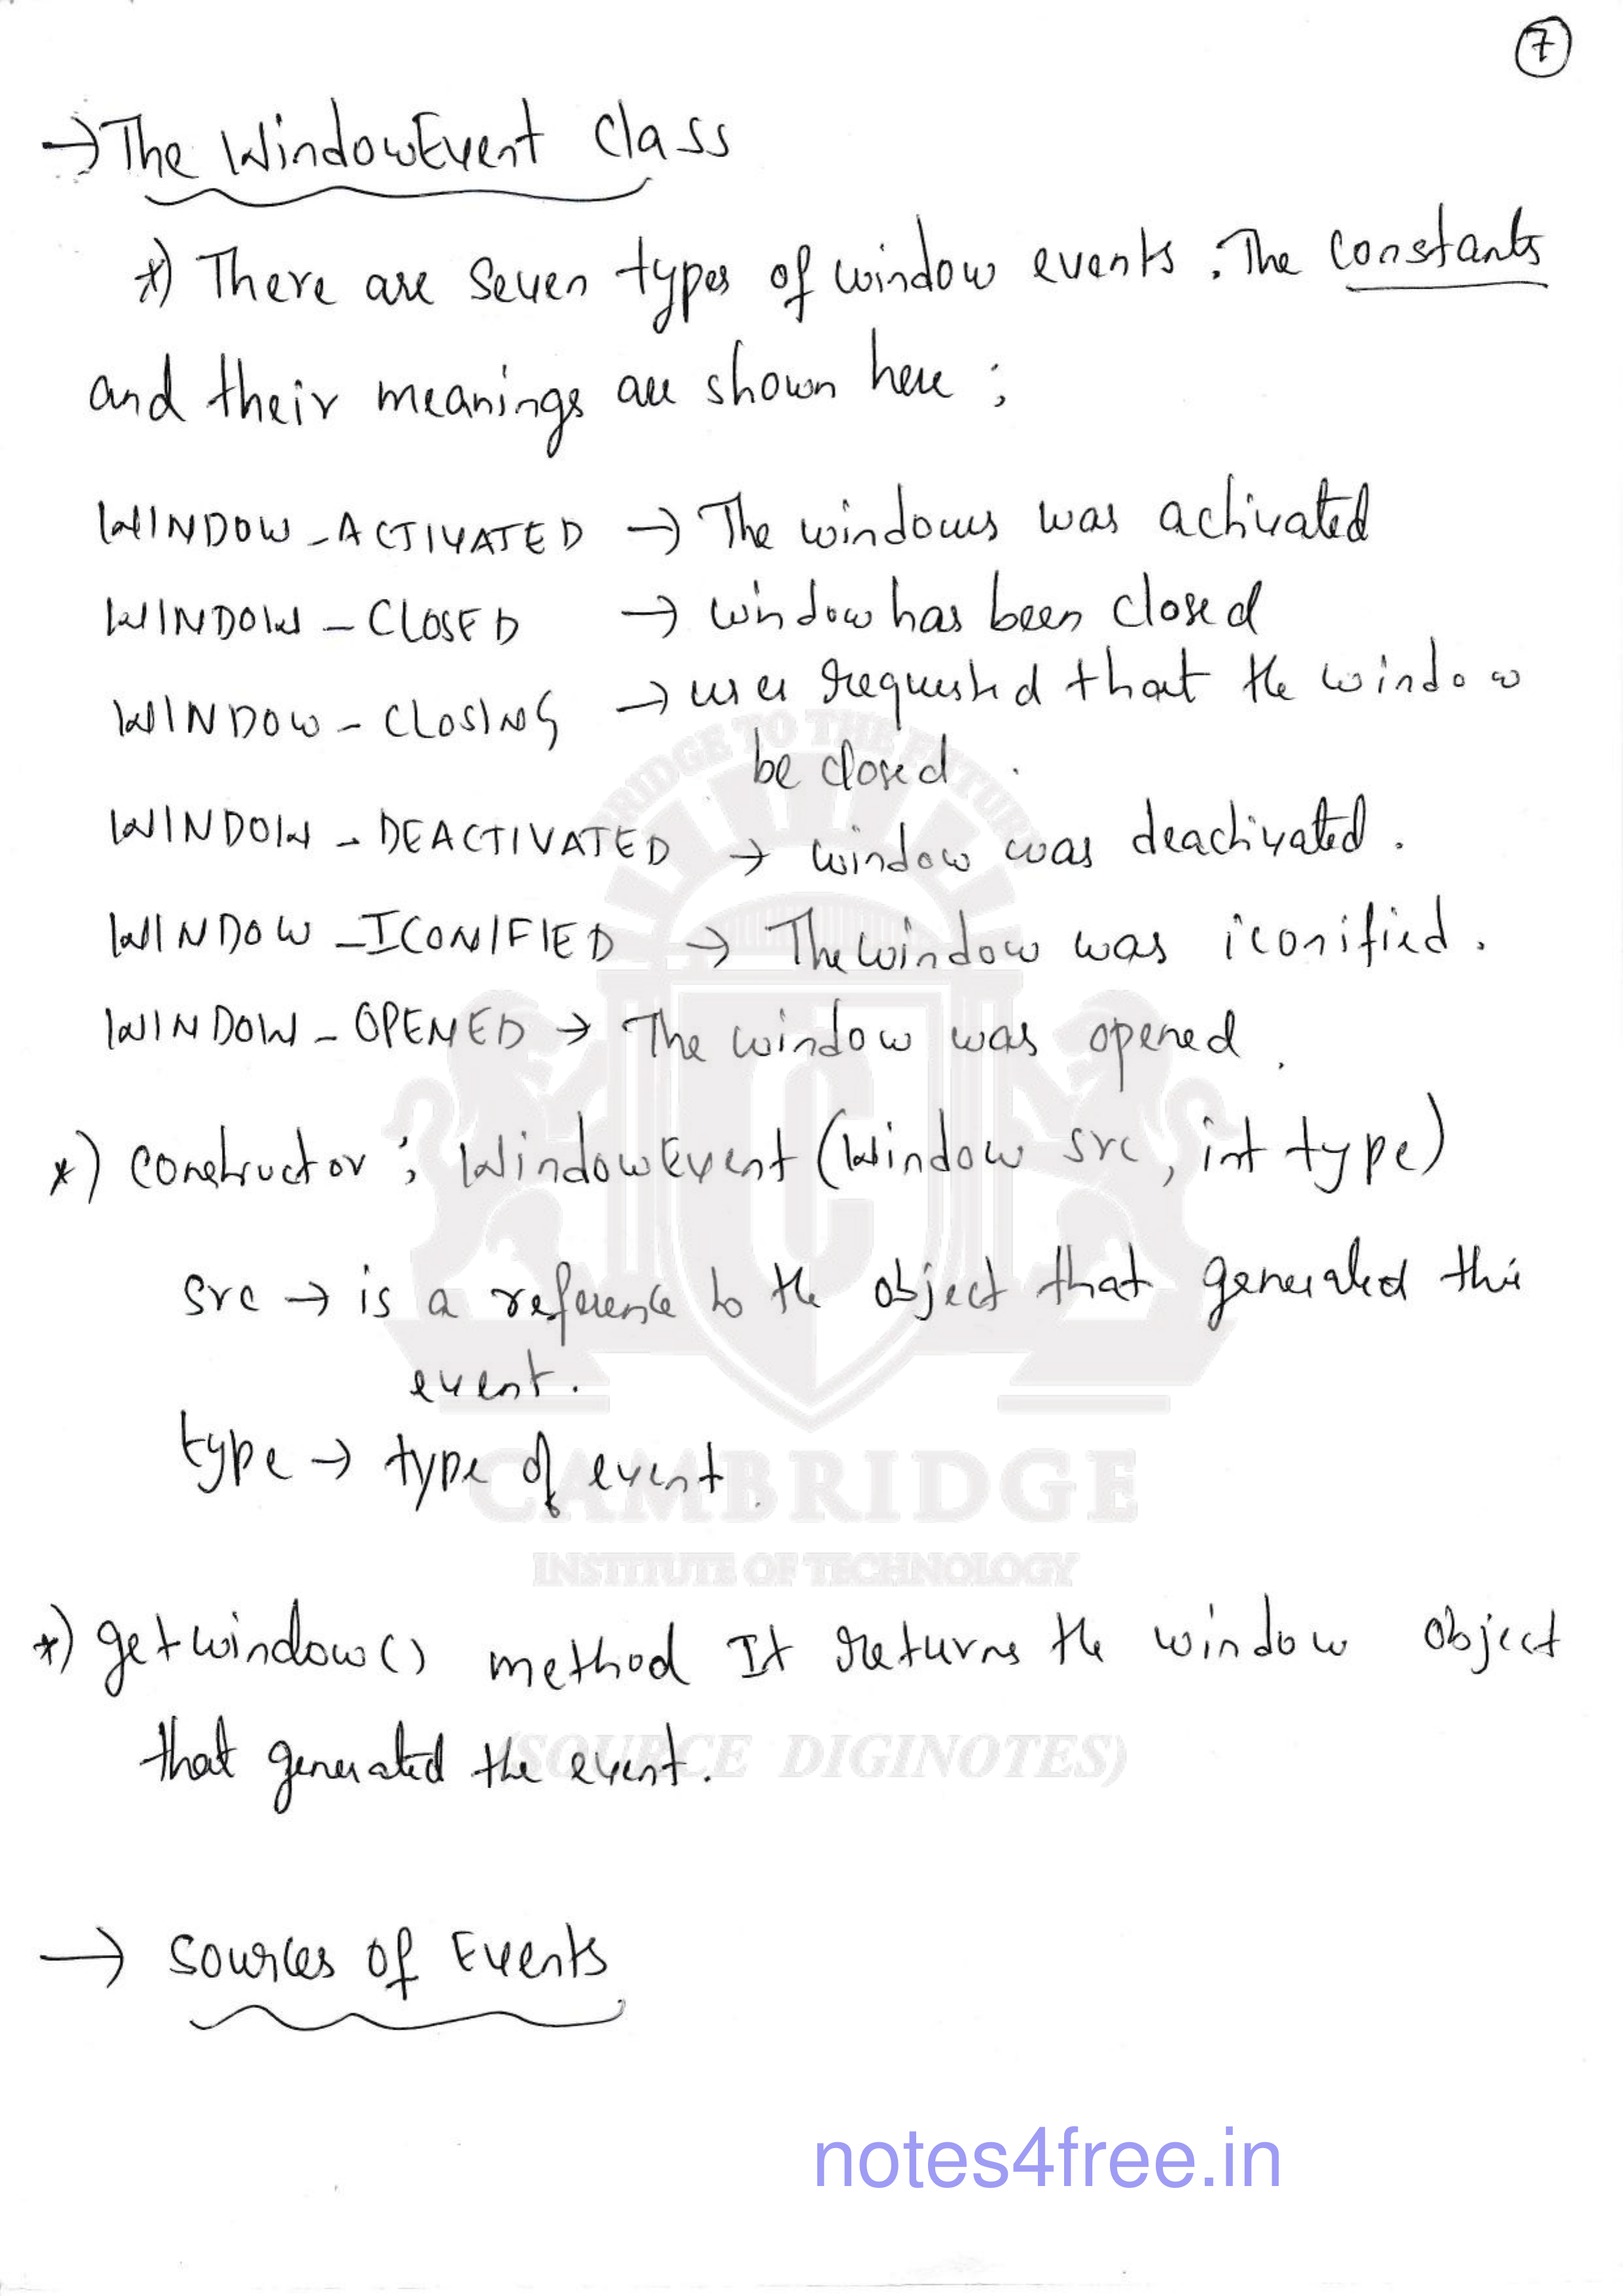 7
→ The WindowEvent Class
*) There are seven types of window events. The constants
and their meanings are shown here:
WINDOW_ACTIVATED → The windows was activated
WINDOW_CLOSED → window has been closed
WINDOW_CLOSING → user requested that the window
be closed.
WINDOW_DEACTIVATED → window was deactivated.
WINDOW_ICONIFIED → The window was iconified.
WINDOW_OPENED → The window was opened.
*) constructor: WindowEvent(Window src, int type)
src → is a reference to the object that generated this
event.
type → type of event.
*) getwindow() method It returns the window object
that generated the event.
→ Sources of Events
BRIDGE TO THE FUTURE
C
CAMBRIDGE
INSTITUTE OF TECHNOLOGY
(SOURCE DIGINOTES)
notes4free.in